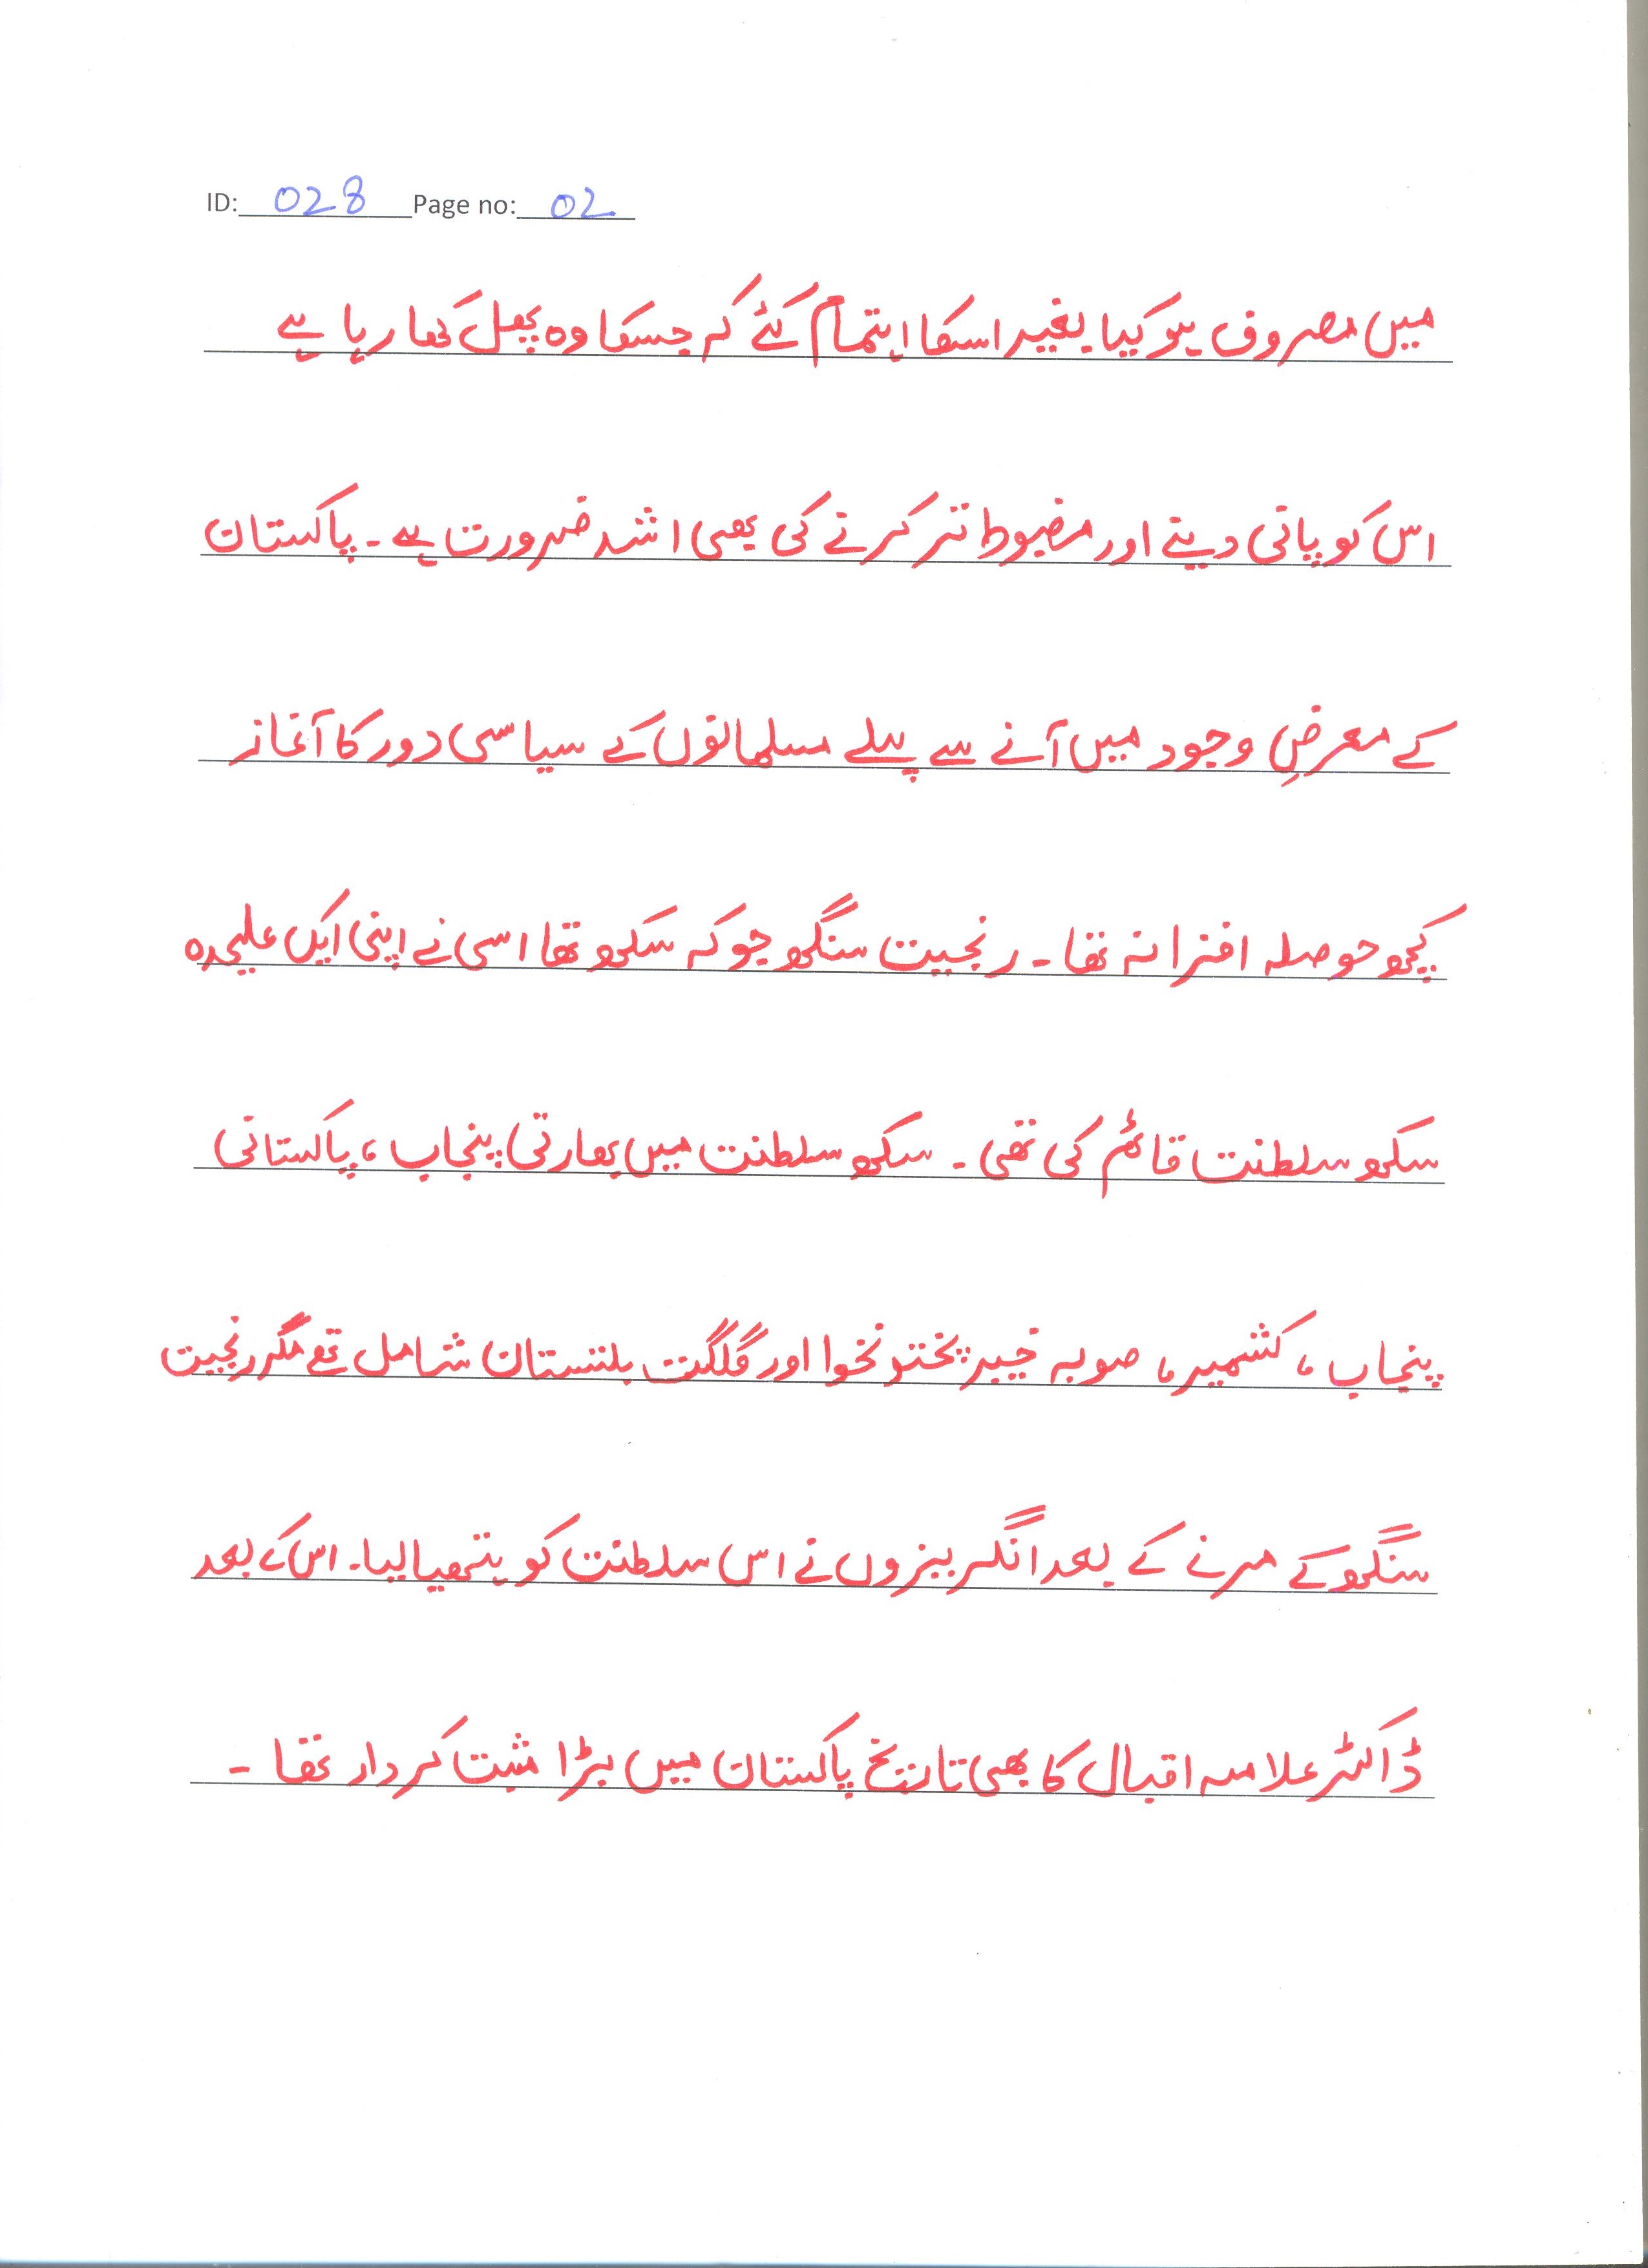 ID: 028 Page no: 02
میں مصروف ہوگیا بغیر اسکا اہتمام کئے کہ جسکا وہ پھل کھا رہا ہے
اس کو پانی دینے اور مضبوط تر کرنے کی بھی اشد ضرورت ہے۔ پاکستان
کے معرضِ وجود میں آنے سے پہلے مسلمانوں کے سیاسی دور کا آغاز
کچھ حوصلہ افزا نہ تھا۔ رنجیت سنگھ جو کہ سکھ تھا اسی نے اپنی ایک علیحدہ
سکھ سلطنت قائم کی تھی۔ سکھ سلطنت میں بھارتی پنجاب، پاکستانی
پنجاب، کشمیر، صوبہ خیبر پختونخوا اور گلگت بلتستان شامل تھے مگر رنجیت
سنگھ کے مرنے کے بعد انگریزوں نے اس سلطنت کو ہتھیا لیا۔ اس کے بعد
ڈاکٹر علامہ اقبال کا بھی تاریخ پاکستان میں بڑا مثبت کردار تھا۔